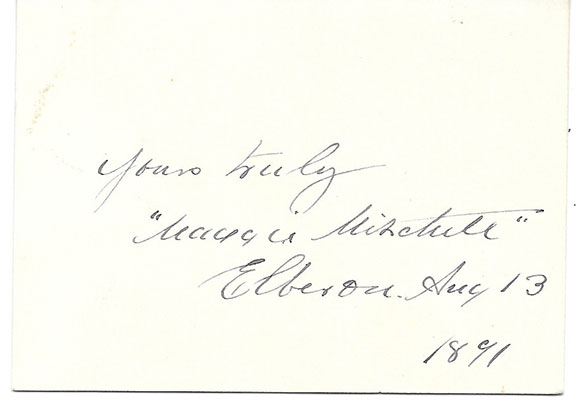 Yours truly
"Maggie Mitchell"
Elberon. Aug 13
1891